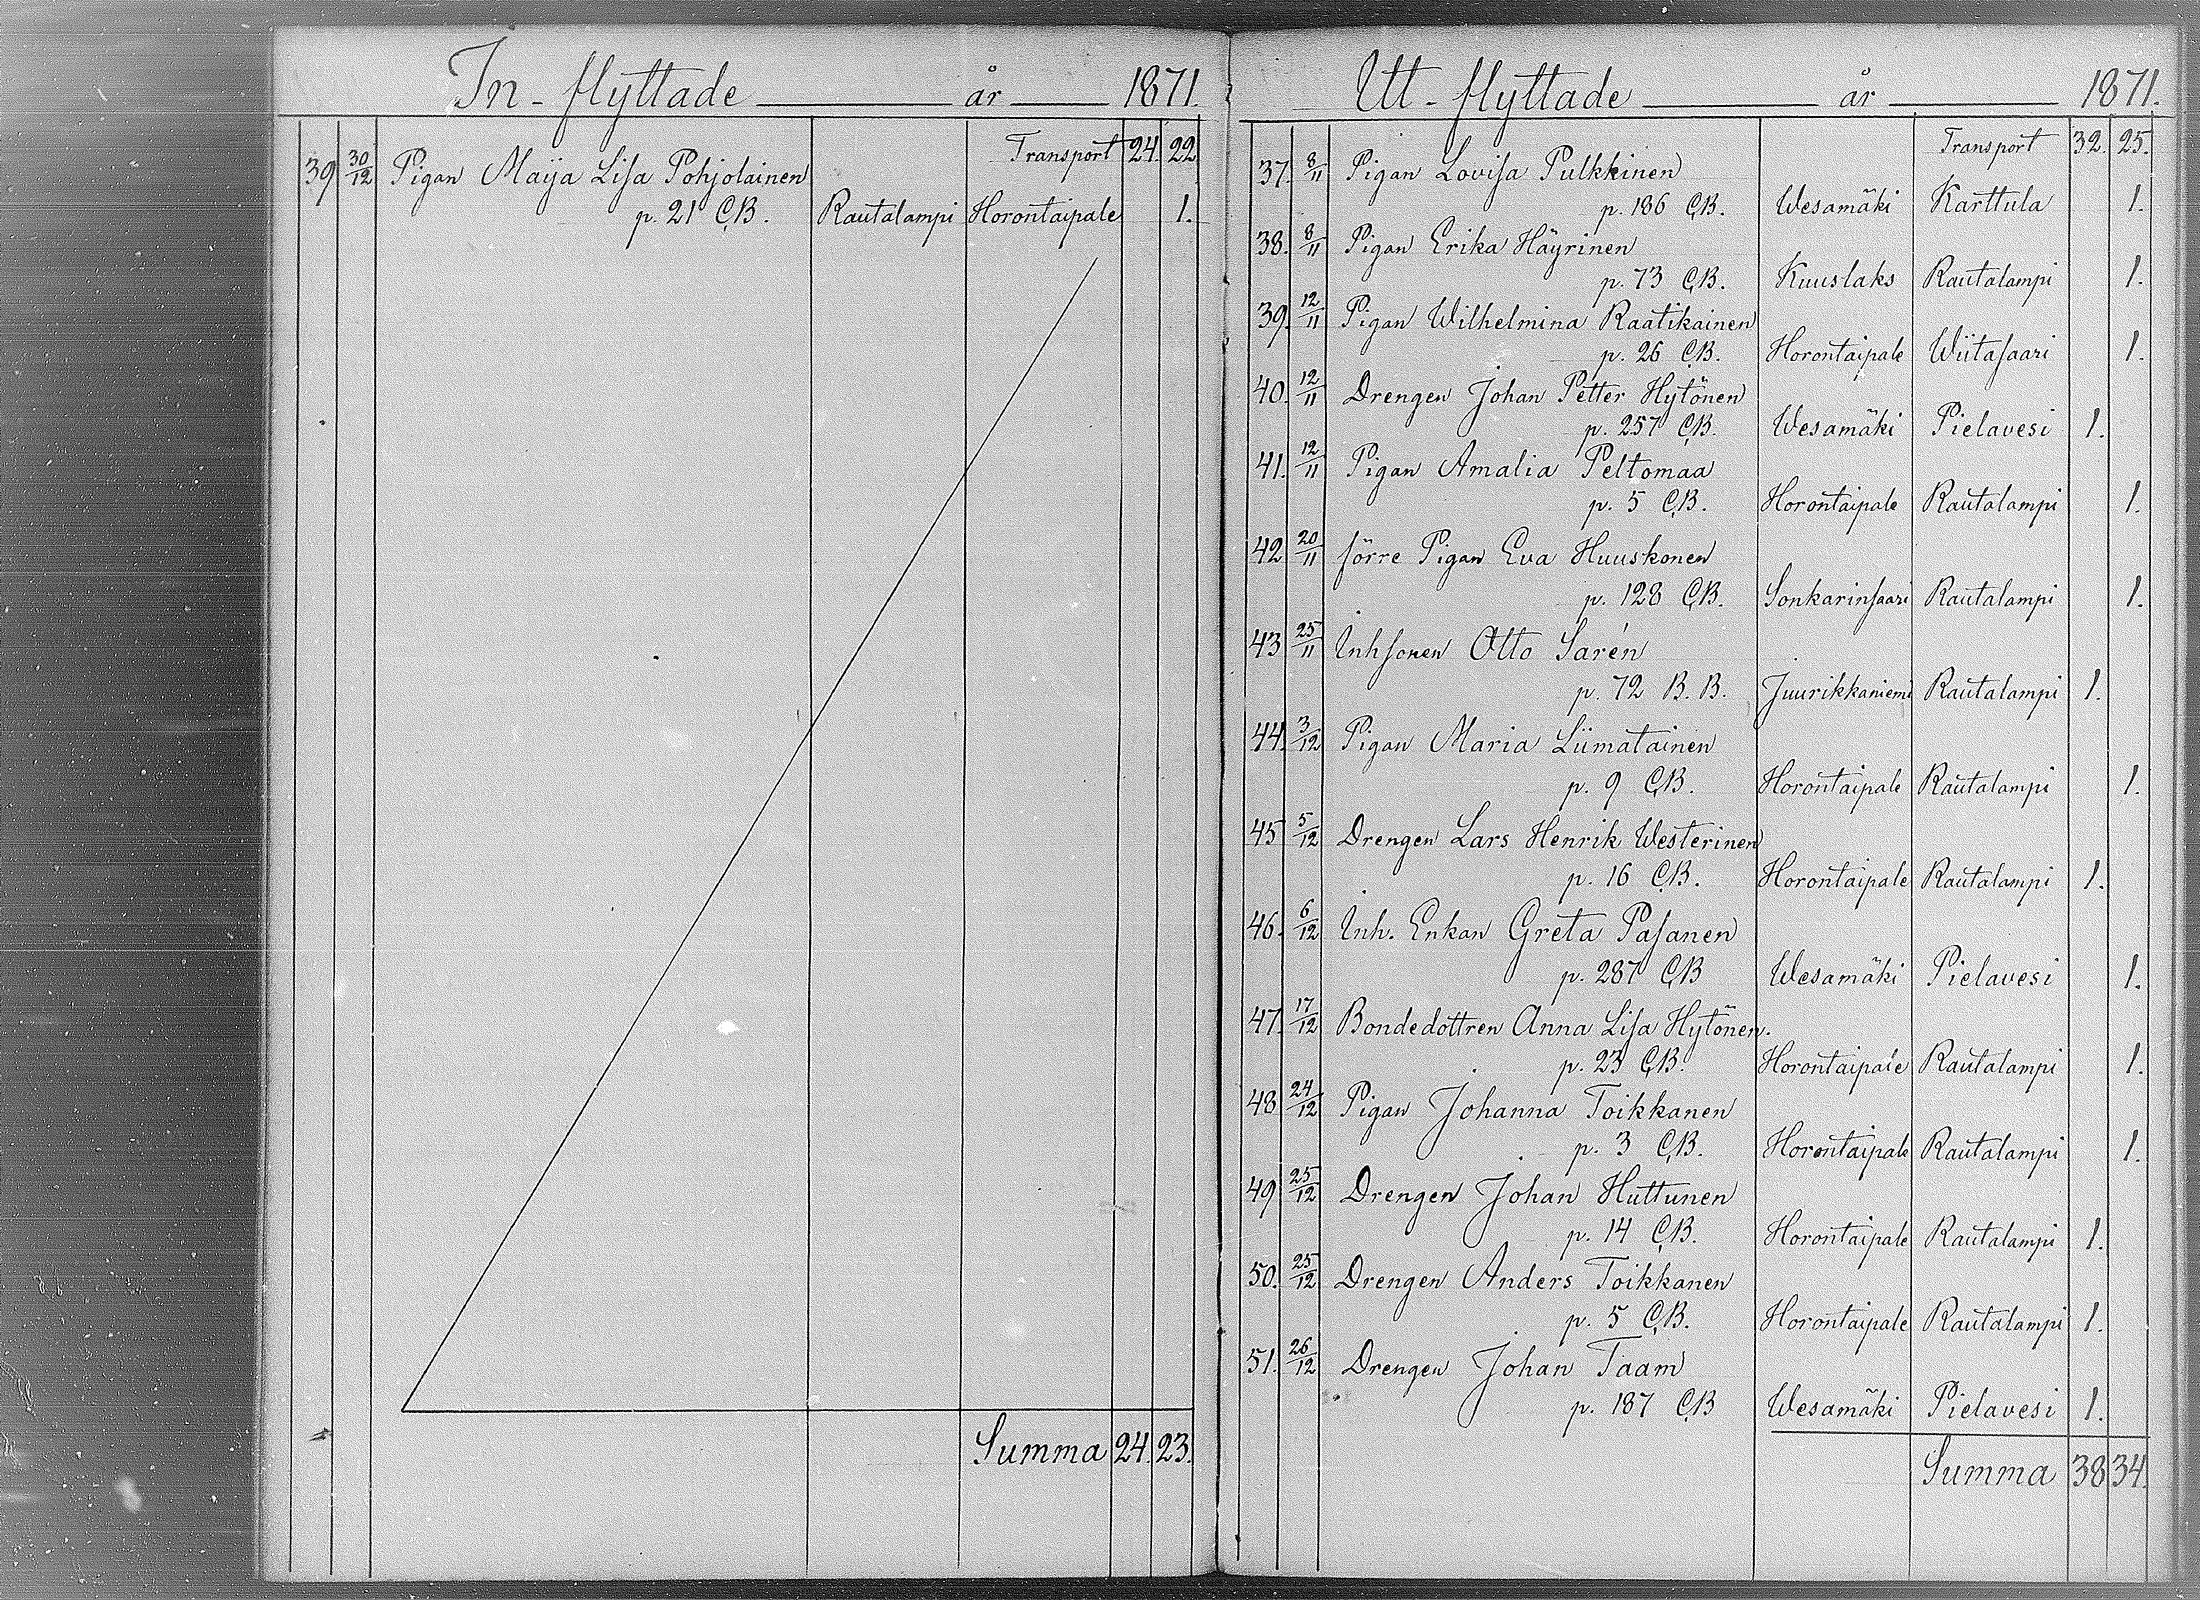 In-flyttade år 1871.
Transport 24. 22
39 30/12 Pigan Maija Lisa Pohjolainen
p. 21 C.B. Rautalampi Horontaipale 1.
Summa 24. 23.
Utt-flyttade år 1871.
Transport 32. 25.
37. 8/11 Pigan Lovisa Pulkkinen
p. 186 C.B. Wesamäki Karttula 1.
38. 8/11 Pigan Erika Häyrinen
p. 73 C.B. Kuuslaks Rautalampi 1.
39. 12/11 Pigan Wilhelmina Raatikainen
p. 26 C.B. Horontaipale Wiitasaari 1.
40. 12/11 Drengen Johan Petter Hytönen
p. 257 C.B. Wesamäki Pielavesi 1.
41. 12/11 Pigan Amalia Peltomaa
p. 5 C.B. Horontaipale Rautalampi 1.
42 20/11 förre Pigan Eva Huuskonen
p. 128 C.B. Sonkarinsaari Rautalampi 1.
43 25/11 Inhsonen Otto Sarén
p. 72 B.B. Juurikkaniemi Rautalampi 1.
44. 3/12 Pigan Maria Liimatainen
p. 9 C.B. Horontaipale Rautalampi 1.
45 5/12 Drengen Lars Henrik Westerinen
p. 16 C.B. Horontaipale Rautalampi 1.
46. 6/12 Inh. Enkan Greta Pasanen
p. 287 C.B Wesamäki Pielavesi 1.
47. 17/12 Bondedottren Anna Lisa Hytönen.
p. 23 C.B. Horontaipale Rautalampi 1.
48 24/12 Pigan Johanna Toikkanen
p. 3 C.B. Horontaipale Rautalampi 1.
49 25/12 Drengen Johan Huttunen
p. 14 C.B. Horontaipale Rautalampi 1.
50. 25/12 Drengen Anders Toikkanen
p. 5 C.B. Horontaipale Rautalampi 1.
51. 26/12 Drengen Johan Taam
p. 187 C.B Wesamäki Pielavesi 1.
Summa 38 34.